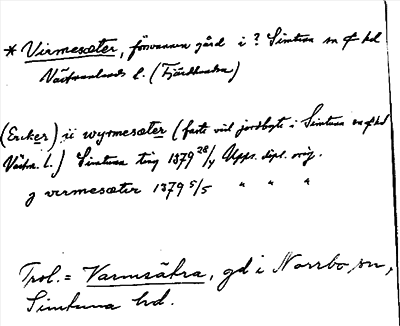 * Virmesæter, försvunnen gård i ? Simtuna sn o hd
Västmanlands l. (Fjädhundra)
(Ericker) ií wyrmesæter (faste vid jordbyte i Simtuna sn o hd
Västm. l.) Simtuna ting 1379 28/4 Upps. dipl. orig.
j virmesætir 1379 5/5 " " "
Trol. = Varmsätra, gd i Norrbo sn,
Simtuna hd.